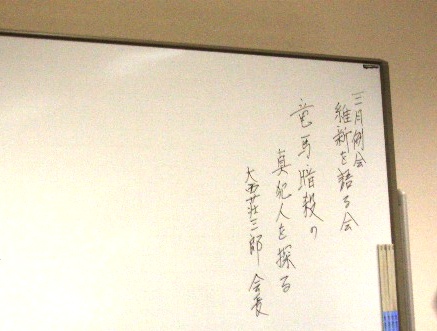 三月例会
維新を語る会
竜馬暗殺の
真犯人を探る
大西荘三郎 会長